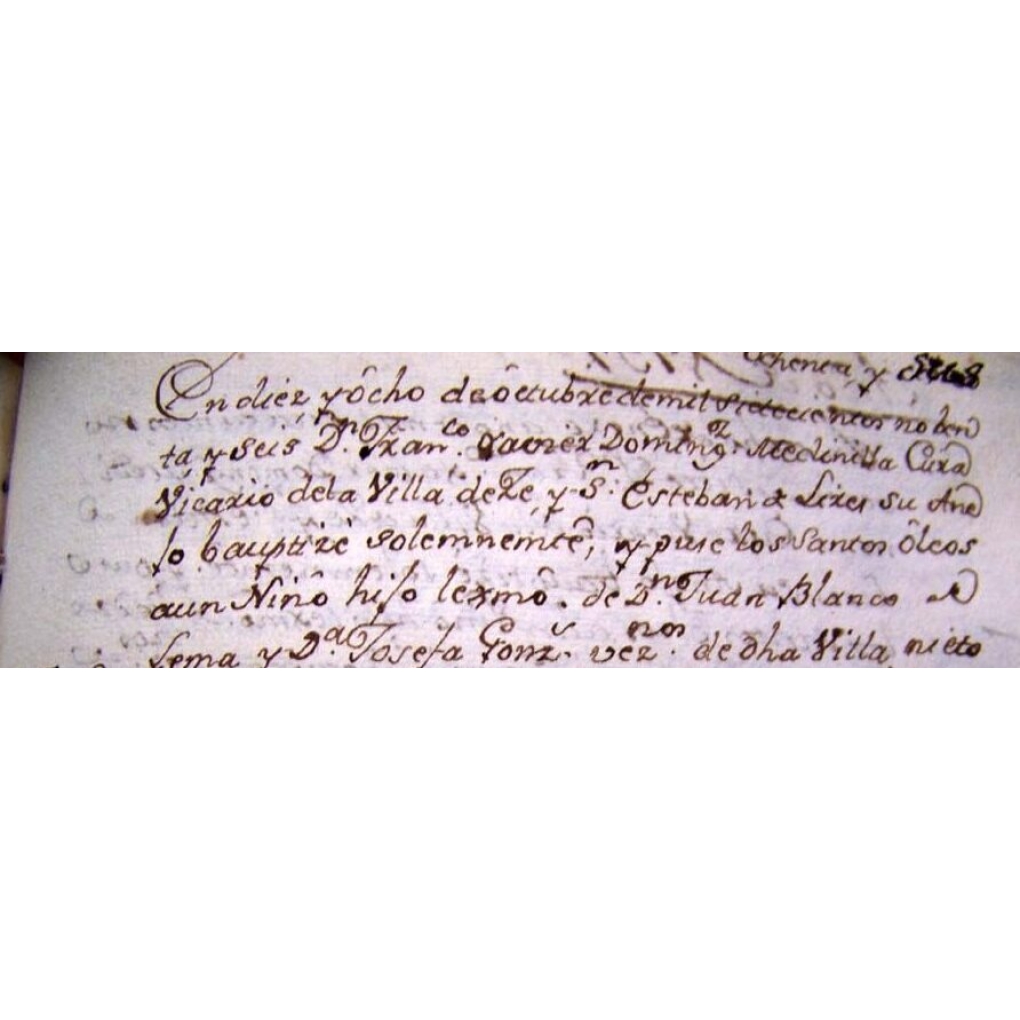 ochenta, y seis
En diez, y ôcho de ôctubre de mil setecientos noben
ta, y seis D.n Fran.co Xavier Doming.z Medinilla Cura
Vicario de la Villa de Ze, y S.n Esteban de Lires su Ane
Jo. bauptizè solemnemtê, y puse los Santos Ôleos
a un Niñô hijo lexmô. de D.n Juan Blanco de
Lema y D.a Josefa Gonz.s vez.nos de dha Villa, nieto